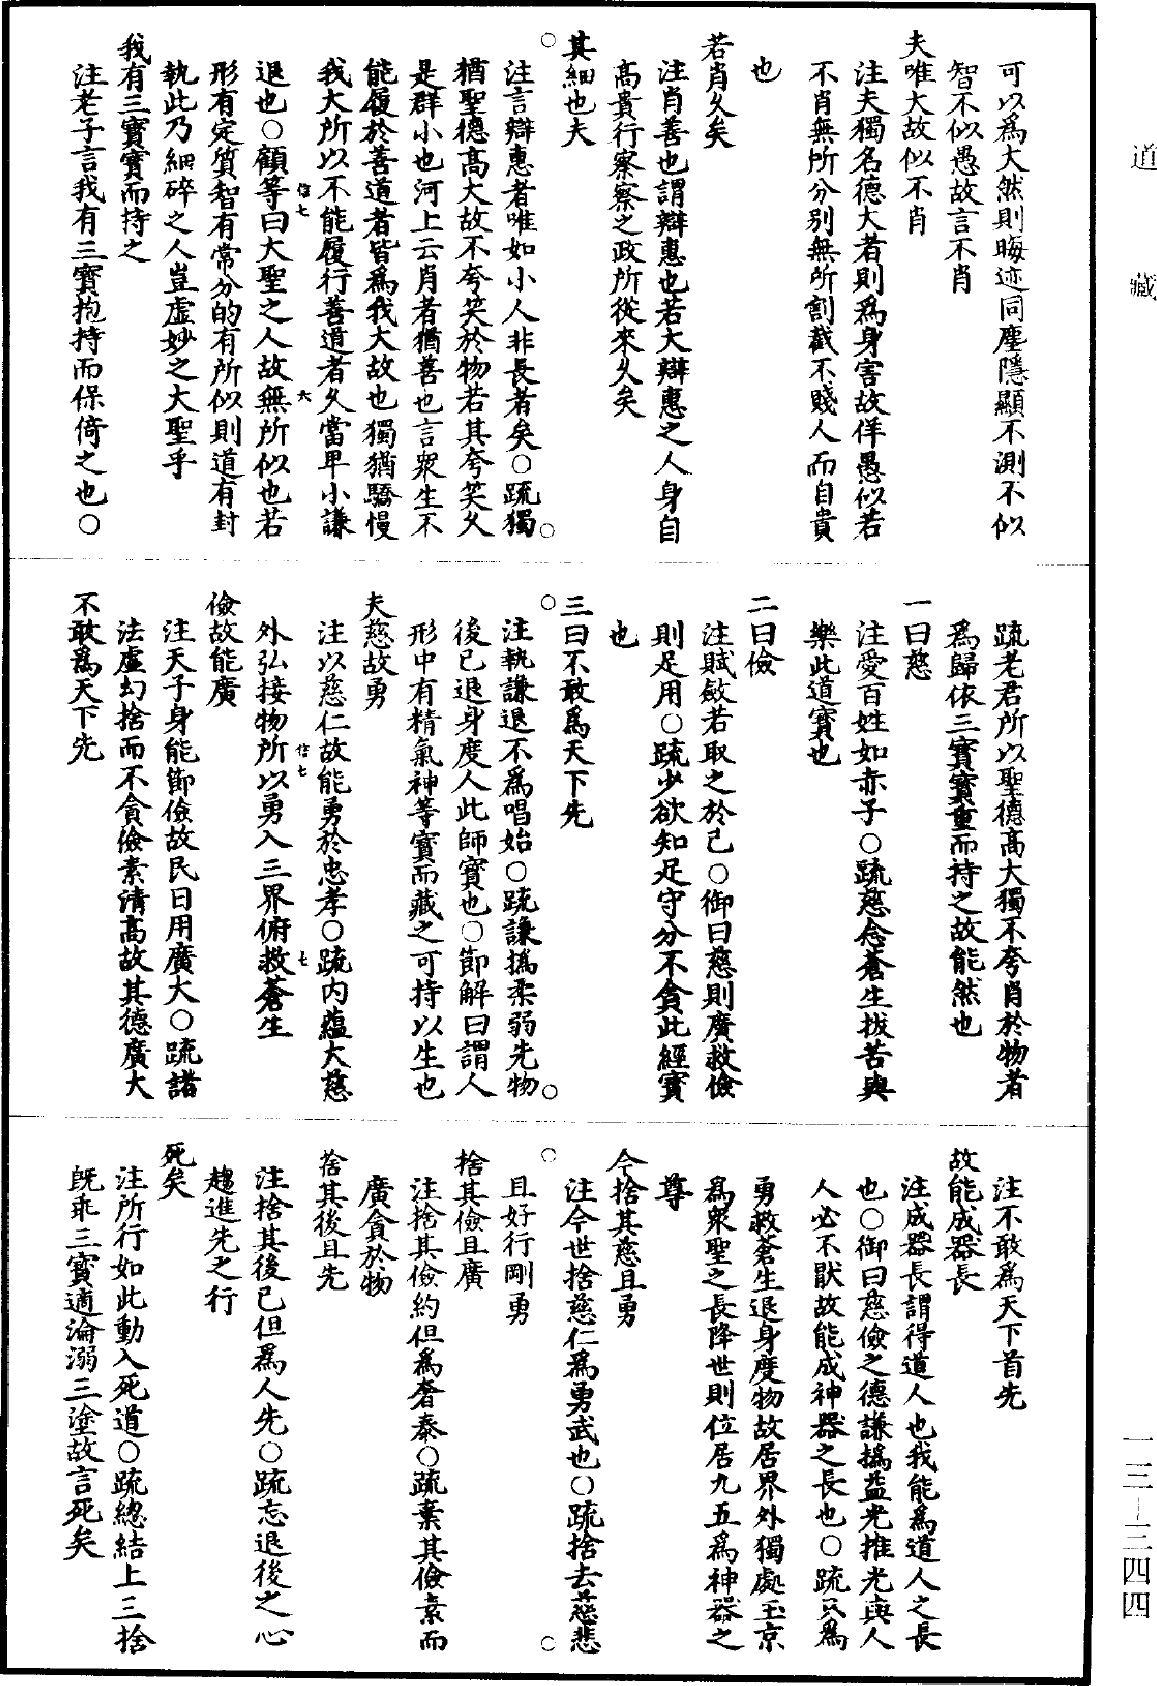 道藏
可以爲大然則晦迹同塵隱顯不測不似
智不似愚故言不肖
夫唯大故似不肖
注夫獨名德大者則爲身害故佯愚似若
不肖無所分别無所割截不賤人而自貴
也
若肖久矣
注肖善也謂辯惠也若大辯惠之人身自
高貴行察察之政所從來久矣
其細也夫
注言辯惠者唯如小人非長者矣○䟽獨
猶聖德高大故不夸笑於物若其夸笑久
是群小也河上云肖者猶善也言衆生不
能履於善道者皆爲我大故也獨猶驕慢
我大所以不能履行善道者久當卑小謙
信七 六
退也○顧等曰大聖之人故無所似也若
形有定質智有常分的有所似則道有封
執此乃細碎之人豈虛妙之大聖乎
我有三寶寶而持之
注老子言我有三寶抱持而保倚之也○
䟽老君所以聖德高大獨不夸肖於物者
爲歸依三寶寶重而持之故能然也
一曰慈
注愛百姓如赤子○䟽慈念蒼生拔苦與
樂此道寶也
二曰儉
注賦斂若取之於己○御曰慈則廣救儉
則足用○䟽少欲知足守分不貪此經寶
也
三曰不敢爲天下先
注執謙退不爲唱始○䟽謙撝柔弱先物
後已退身度人此師寶也○節解曰謂人
形中有精氣神等寶而藏之可持以生也
夫慈故勇
注以慈仁故能勇於忠孝○䟽内藴大慈
信七 七
外弘接物所以勇入三界俯救蒼生
儉故能廣
注天子身能節儉故民日用廣大○䟽諸
法虛幻捨而不貪儉素清高故其德廣大
不敢爲天下先
注不敢爲天下首先
故能成器長
注成器長謂得道人也我能爲道人之長
也○御曰慈儉之德謙撝益光推先與人
人必不猒故能成神器之長也○䟽只爲
勇救蒼生退身度物故居界外獨處玉京
爲衆聖之長降世則位居九五爲神器之
尊
今捨其慈且勇
注今世捨慈仁爲勇武也○䟽捨去慈悲
且好行剛勇
捨其儉且廣
注捨其儉約但爲奢泰○䟽棄其儉素而
廣貪於物
捨其後且先
注捨其後已但爲人先○䟽忘退後之心
趨進先之行
死矣
注所行如此動入死道○䟽總結上三捨
旣乖三寶適淪溺三塗故言死矣
一三—三四四